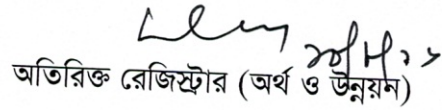 অতিরিক্ত রেজিস্ট্রার (অর্থ ও উন্নয়ন)